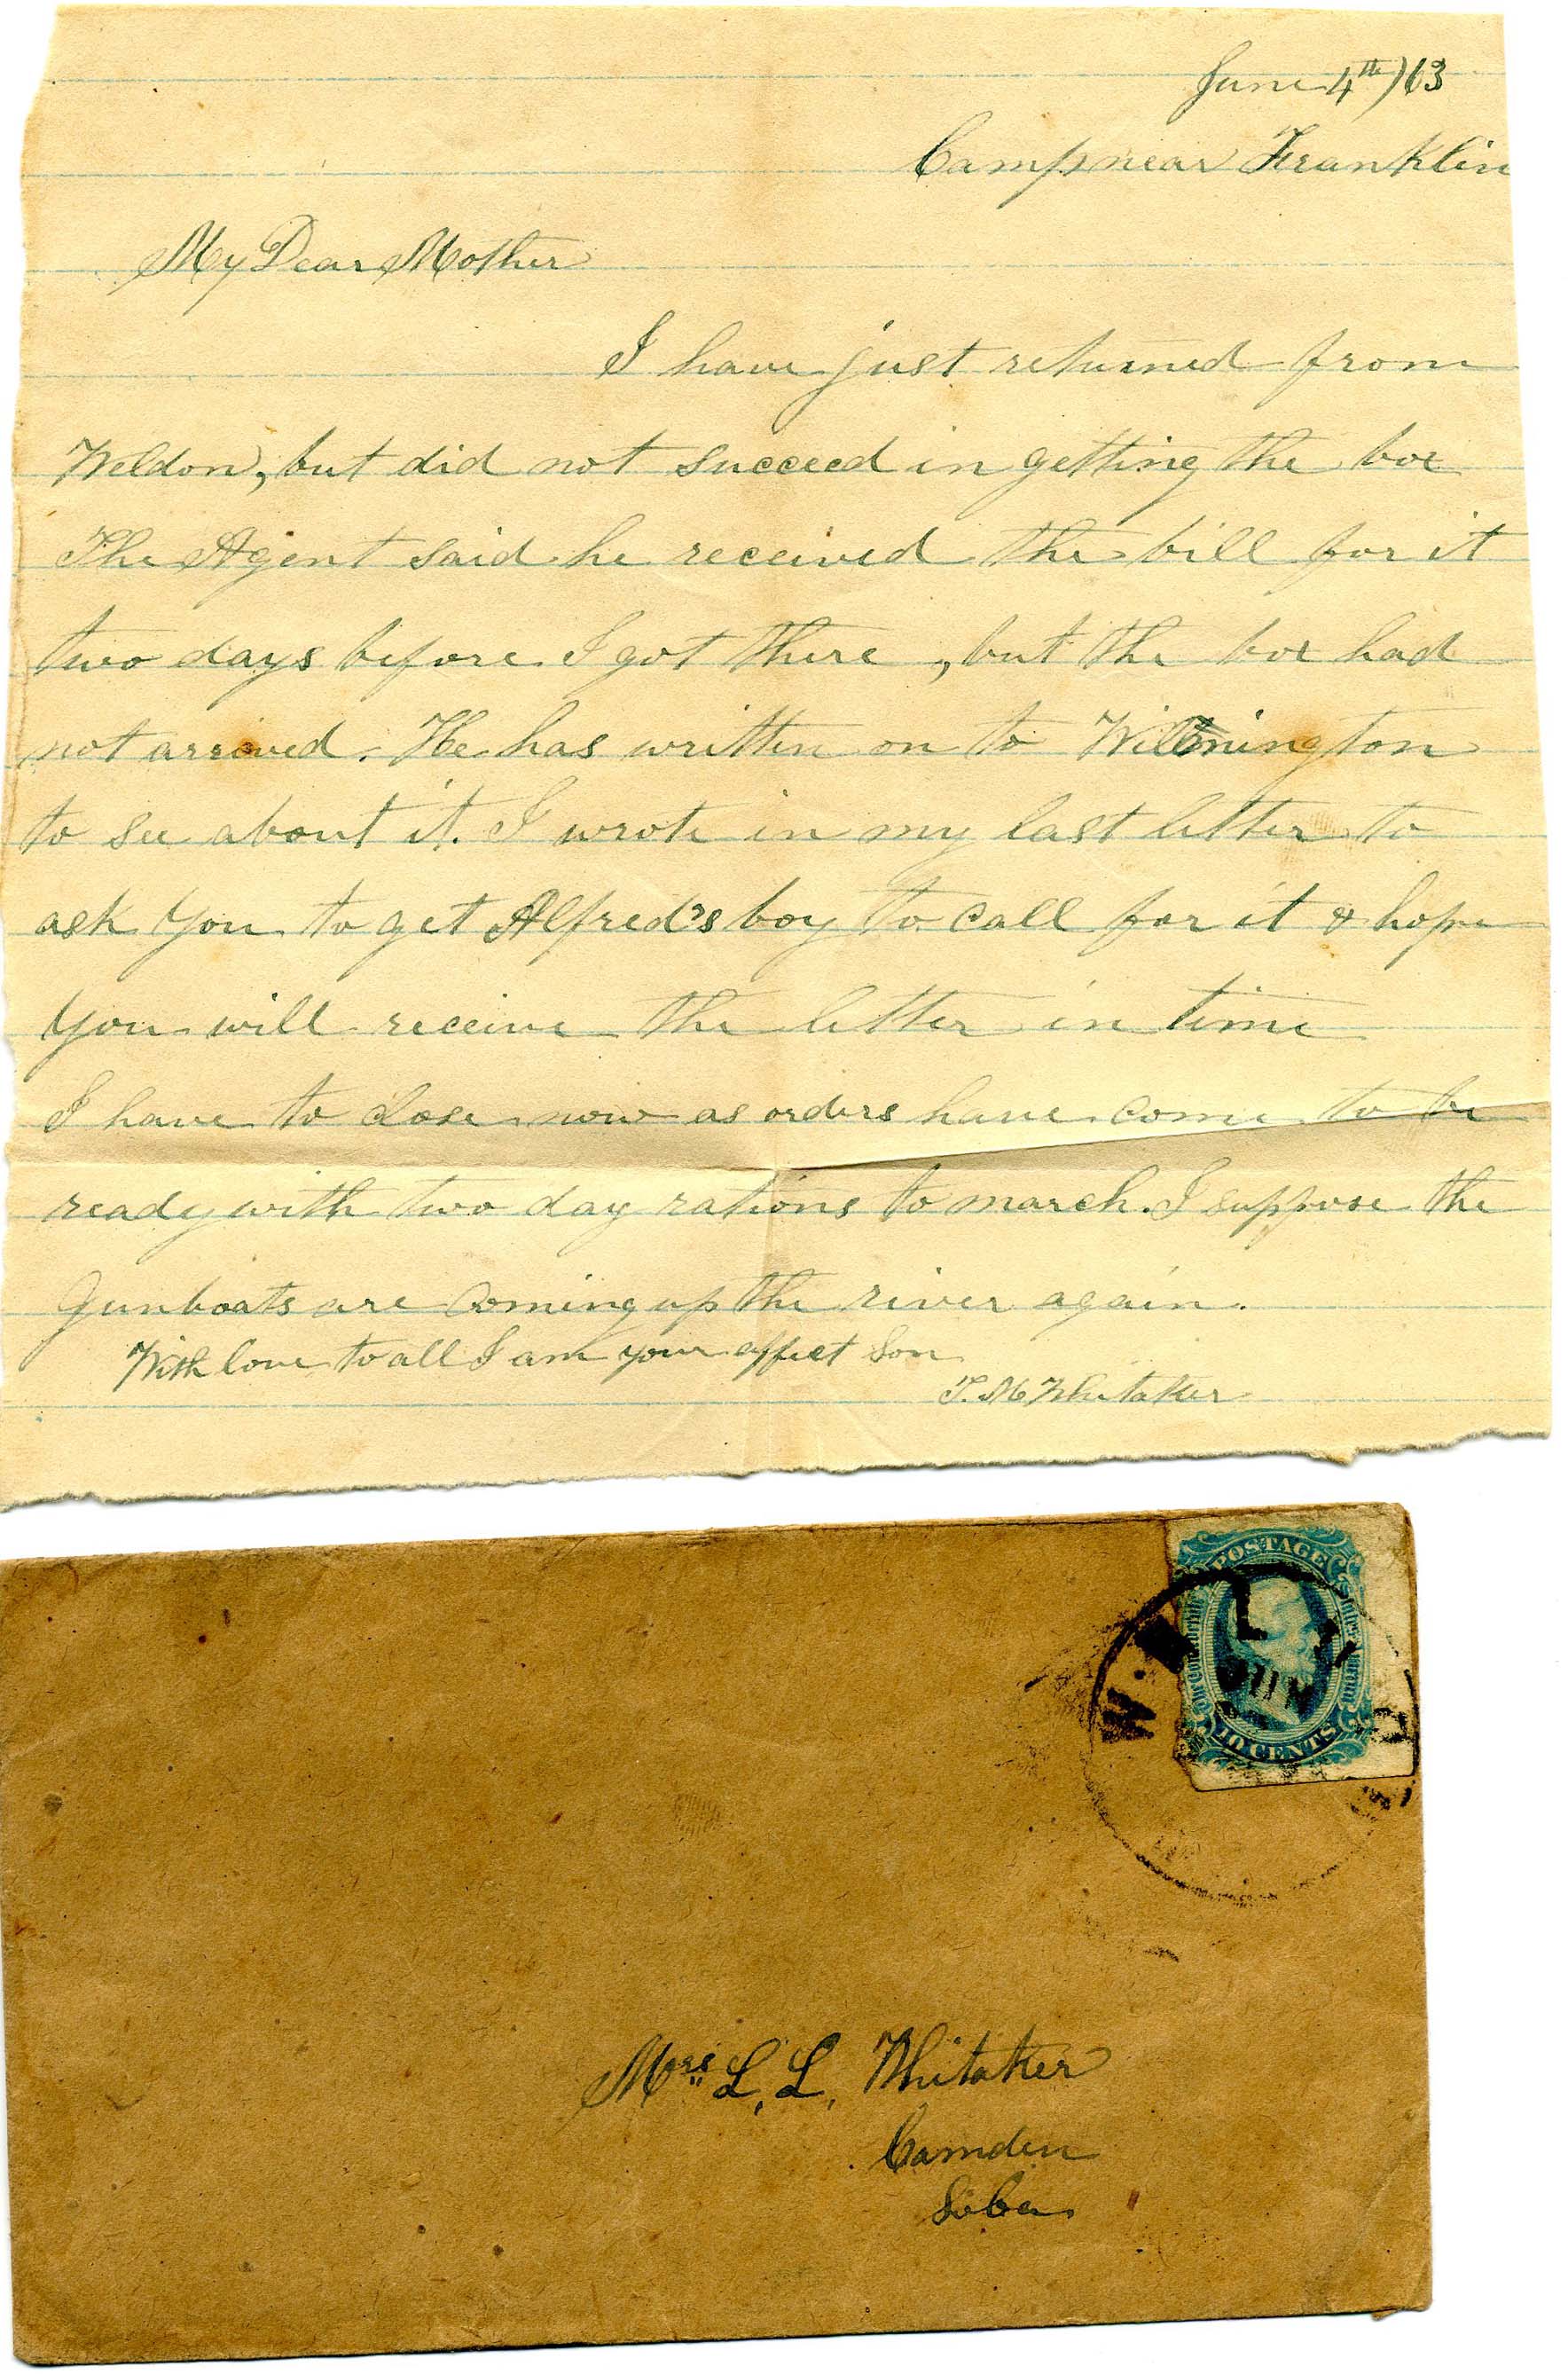 June 4th /63
Camp near Franklin
My Dear Mother
I have just returned from
Weldon, but did not succeed in getting the box
The Agent said he received the bill for it
two days before I got there, but the box had
not arrived. He has written on to Wilmington
to see about it. I wrote in my last letter to
ask you to get Alfred's boy to call for it & hope
you will receive the letter in time
I have to close now as orders have come to be
ready with two day rations to march. I suppose the
Gunboats are coming up the river again.
With love to all I am your affect Son
T. M Whitaker
POSTAGE
10 CENTS
Mrs. L. L. Whitaker
Camden
So Ca